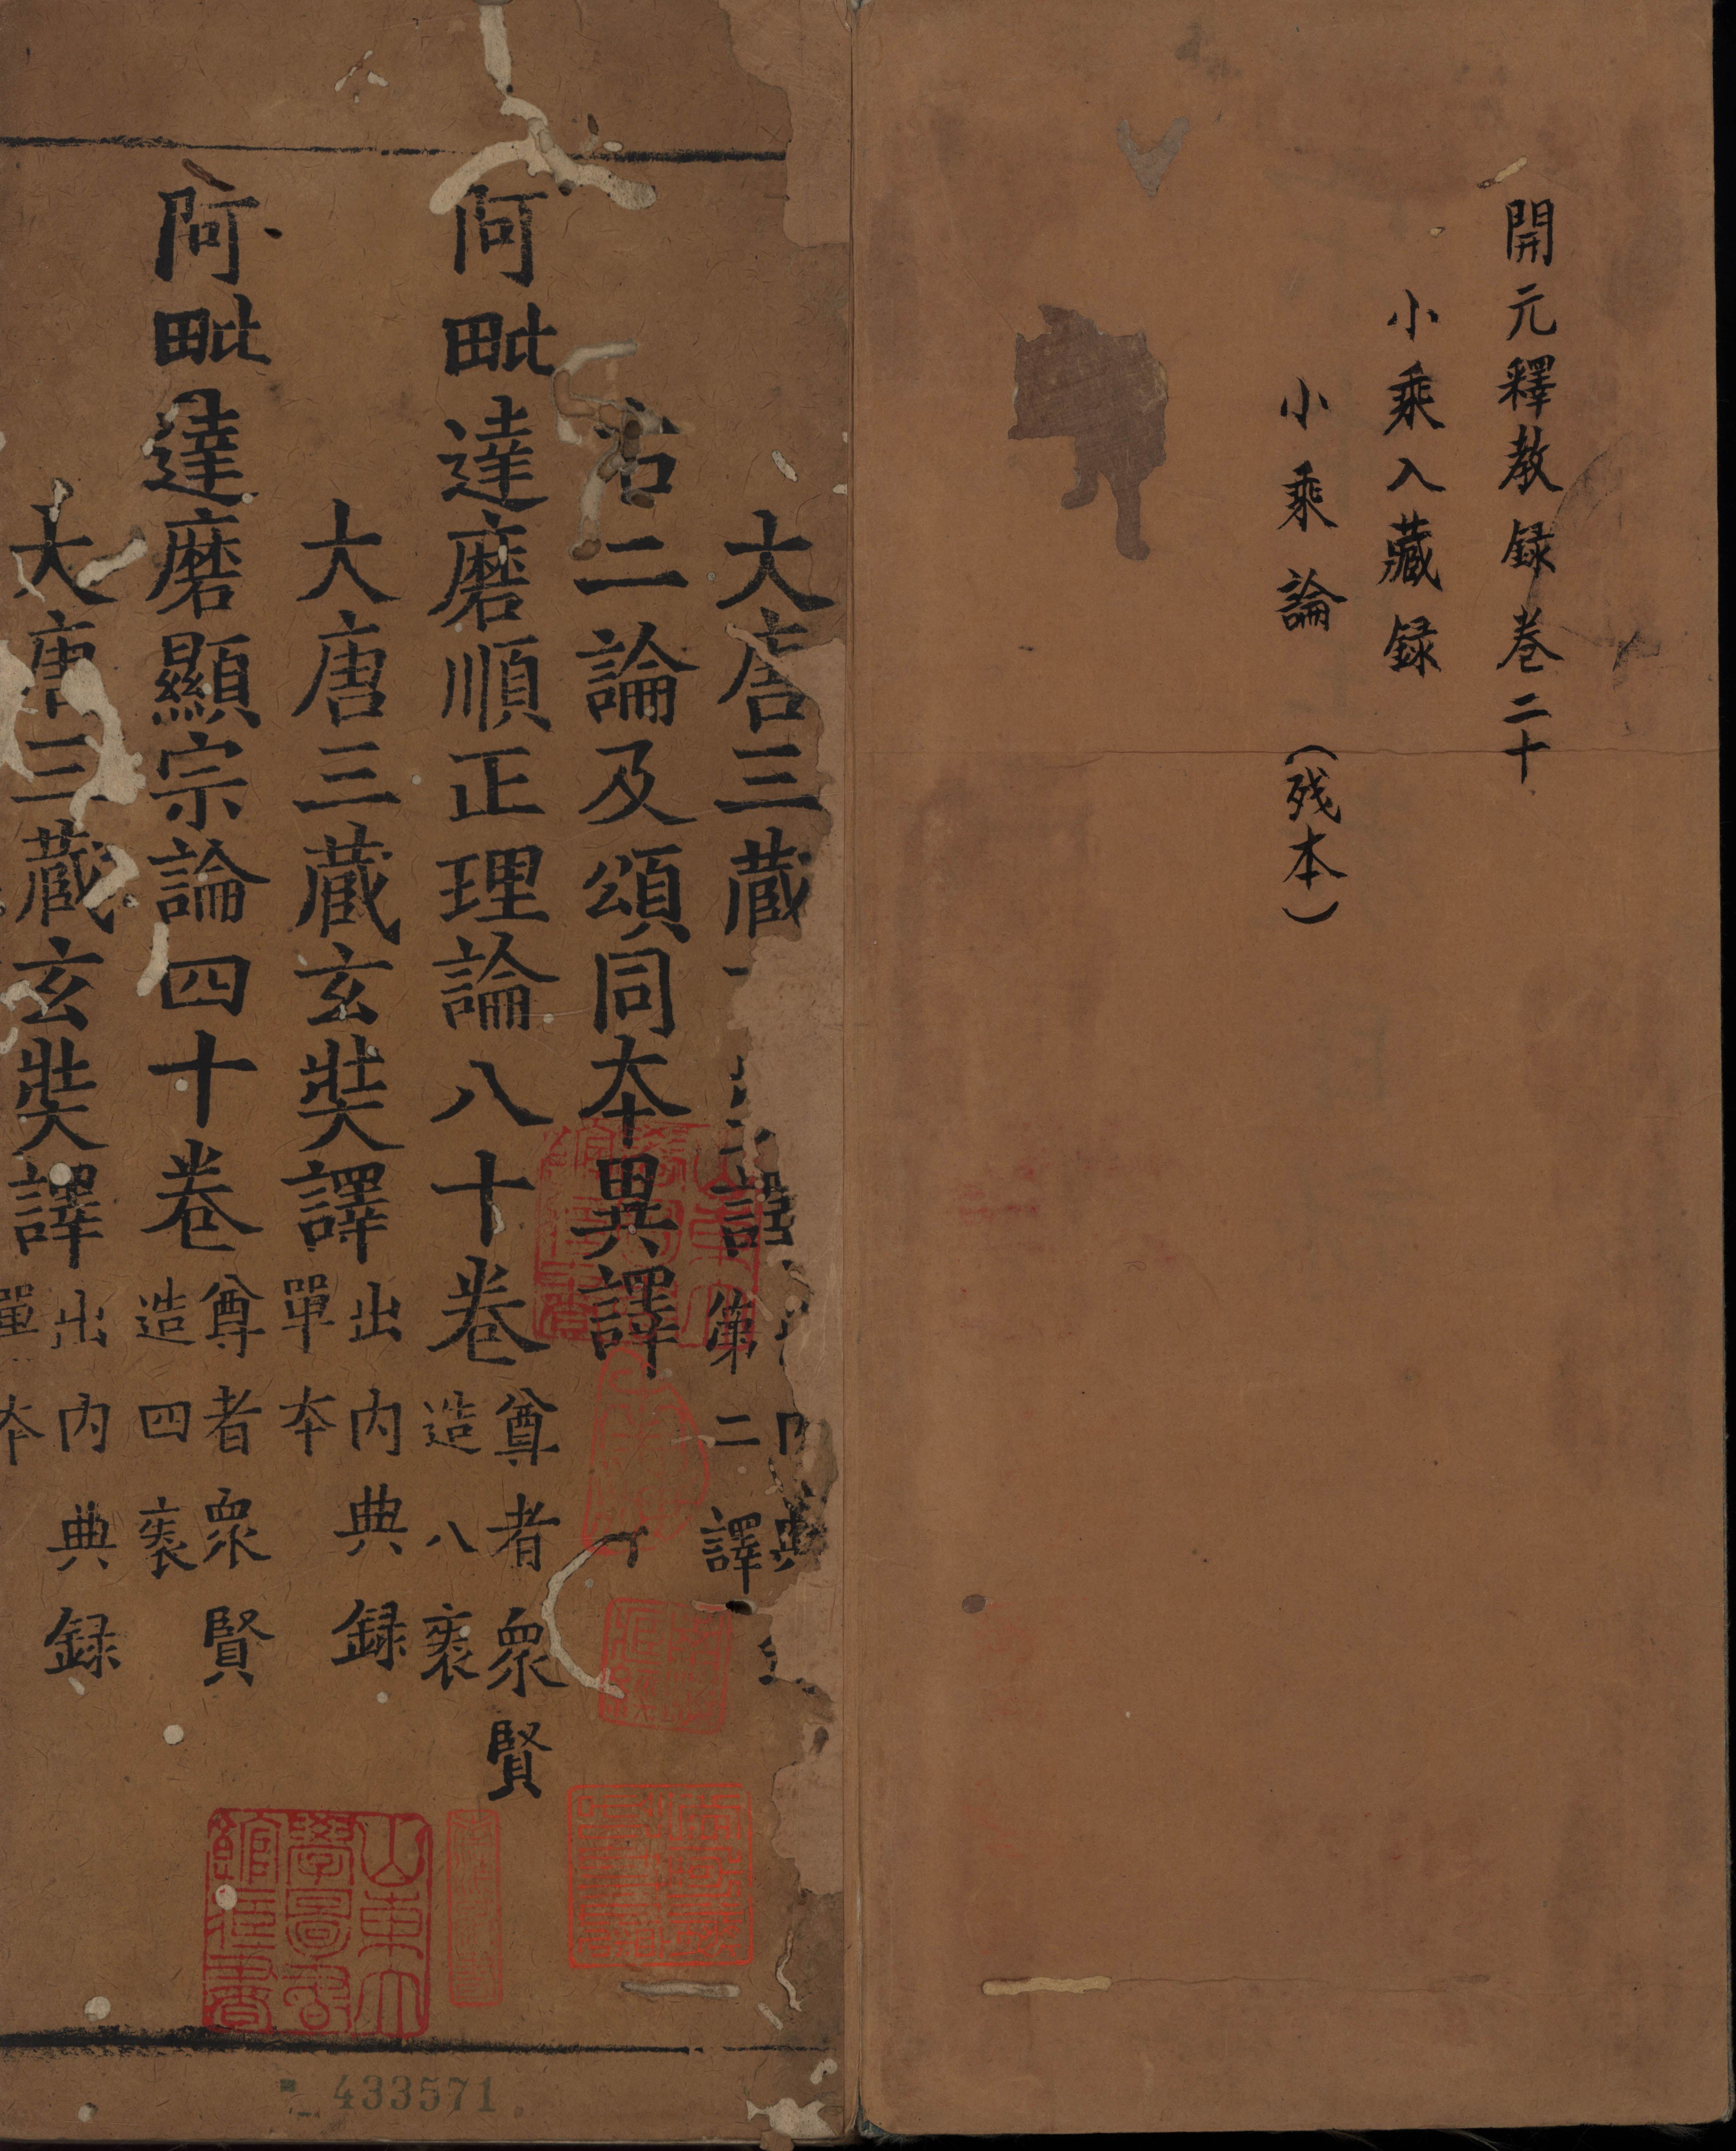 開元釋教録卷二十
小乘入藏録
小乘論 (残本)
大唐三藏
譯
第二譯
右二論及頌同本異譯
阿毗達磨順正理論八十卷
尊者衆賢
造八袠
大唐三藏玄奘譯
出内典録
單本
阿毗達磨顯宗論四十卷
尊者衆賢
造四袠
大唐三藏玄奘譯
出内典録
單本
山東大學圖書館莊書
433571